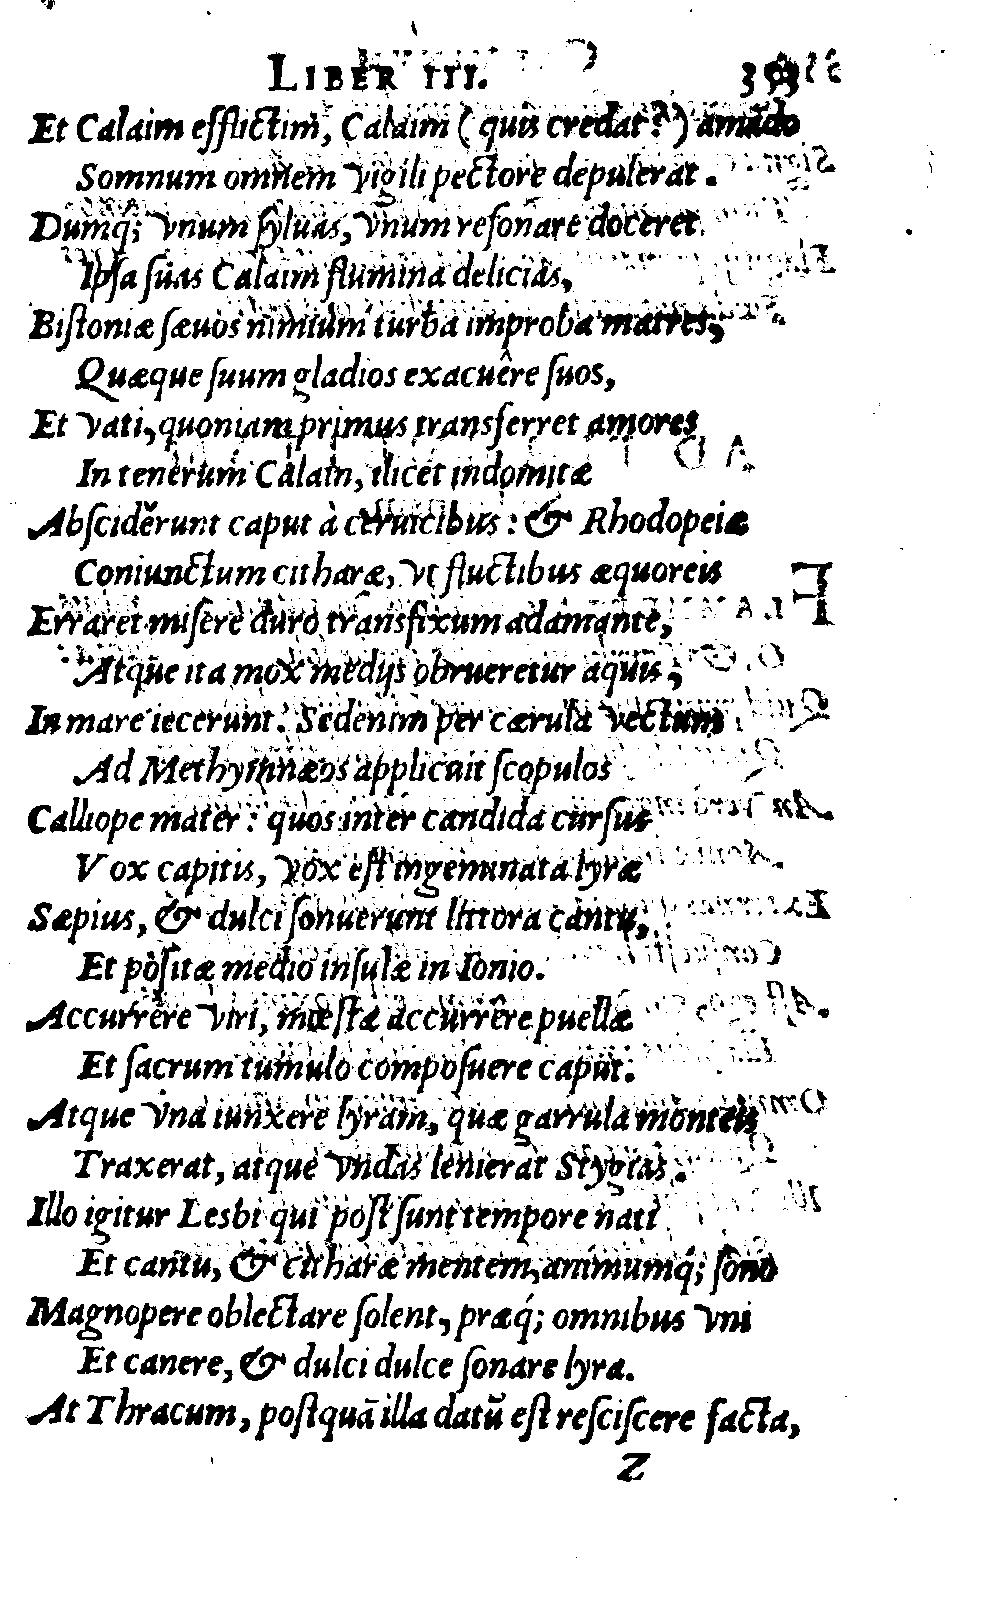 LIBER III. 353
Et Calaim efflictim, Calaim ( quis credat? ) amãdo
Somnum omnem vigili pectore depulerat.
Dumq́; vnum syluas, vnum resonare doceret
Ipsa suas Calaim flumina delicias,
Bistoniæ sæuos nimium turba improba matres,
Quæque suum gladios exacuêre suos,
Et vati, quoniam primus transferret amores
In tenerum Calain, ilicet indomitæ
Abscidêrunt caput à ceruicibus: & Rhodopeiæ
Coniunctum citharæ, vt fluctibus æquoreis
Erraret miserè duro transfixum adamante,
Atque ita mox medijs obrueretur aquis;
In mare iecerunt. Sed enim per cærula vectum
Ad Methymnæos applicuit scopulos
Calliope mater: quos inter candida cursus
Vox capitis, vox est ingeminata lyræ
Sæpius, & dulci sonuerunt littora cantu,
Et pòsitæ medio insulæ in Ionio.
Accurrêre viri, mœstæ accurrêre puellæ
Et sacrum tumulo composuere caput.
Atque vnà iunxere lyram, quæ garrula monteis
Traxerat, atque vndas lenierat Stygias.
Illo igitur Lesbi qui post sunt tempore nati
Et cantu, & citharæ mentem, animumq́; sono
Magnopere oblectare solent, præq́; omnibus vni
Et canere, & dulci dulce sonare lyra.
At Thracum, postquã illa datũ est resciscere facta,
Z